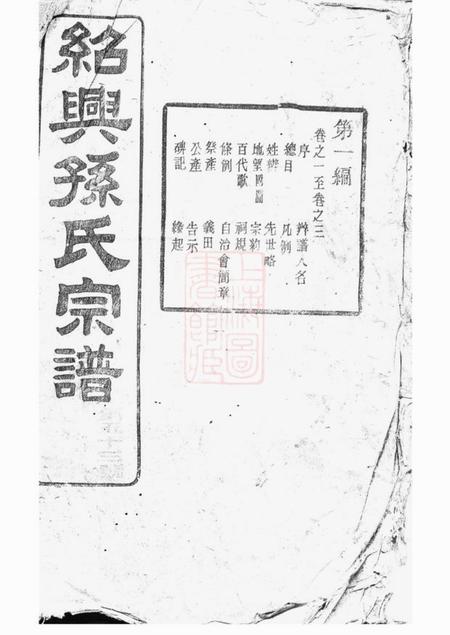 紹興孫氏宗譜
第一編
卷之一至卷之三
序 辦譜人名
總目 凡例
姓辨 先世略
地望圖 宗約
百代歌 祠規
條例 自治會簡章
祭產 義田
公產 告示
碑記 緣起
上海圖書館藏